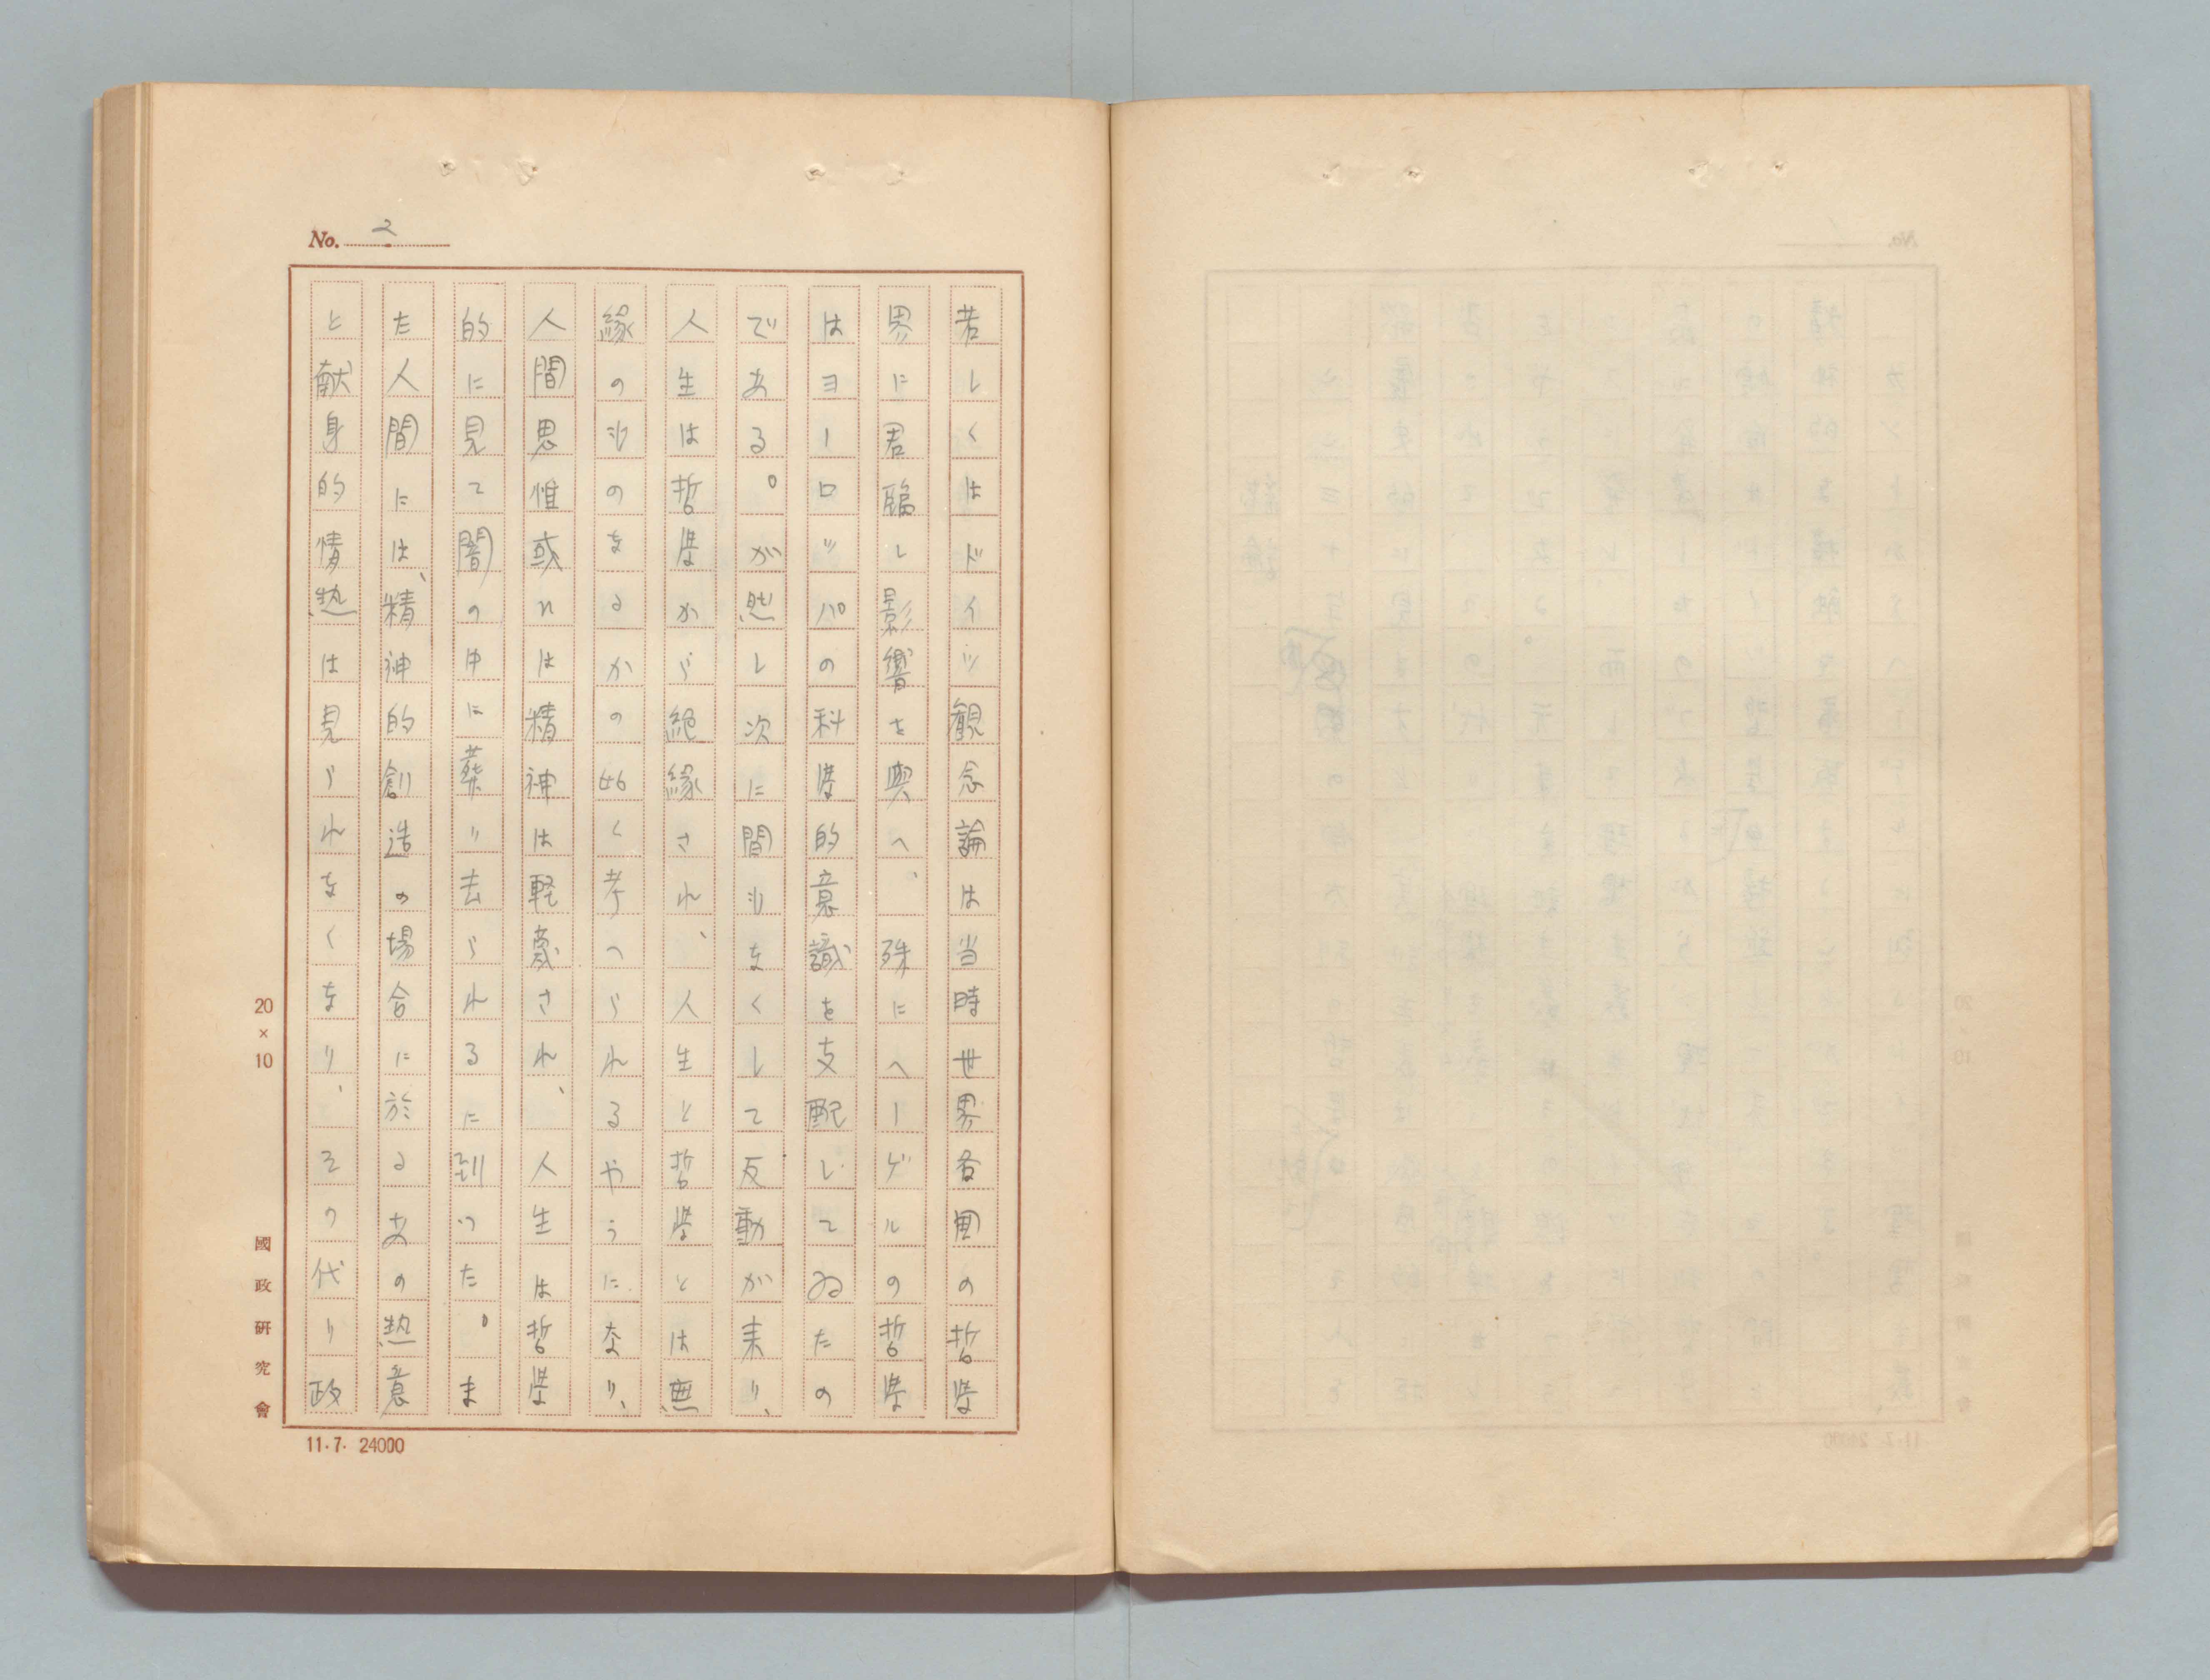 No. 2
若しくはドイツ観念論は当時世界各国の哲学
界に君臨し影響を與へ、殊にヘーゲルの哲学
はヨーロッパの科学的意識を支配してゐたの
である。が然し次に間もなくして反動が来り、
人生は哲学から絶縁され、人生と哲学とは無
縁のものなるかの如く考へられるやうになり、
人間思惟或れは精神は軽蔑され、人生は哲学
的に見て闇の中に葬り去られるに到った。ま
た人間には、精神的創造の場合に於るあの熱意
と献身的情熱は見られなくなり、その代り政
20×10
國政研究會
11.7. 24000